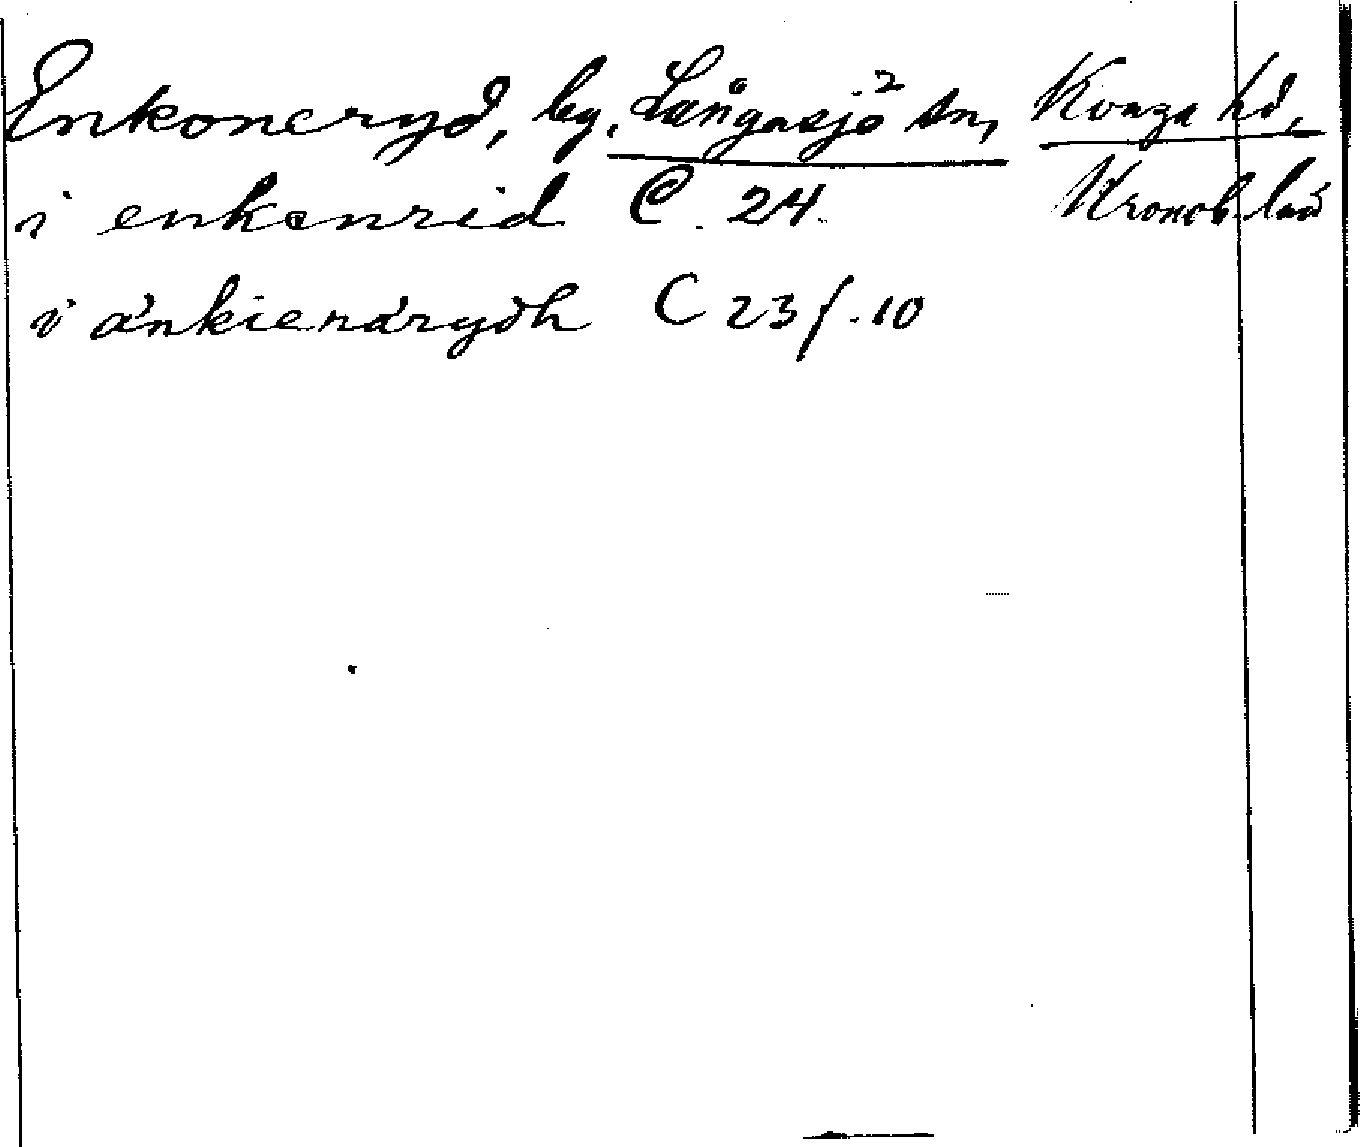 Enkoneryd, by, Långasjö sn, Konga hd,
i enkenrid C. 24. Kronob. län
i änkienärydh C 23 f. 10